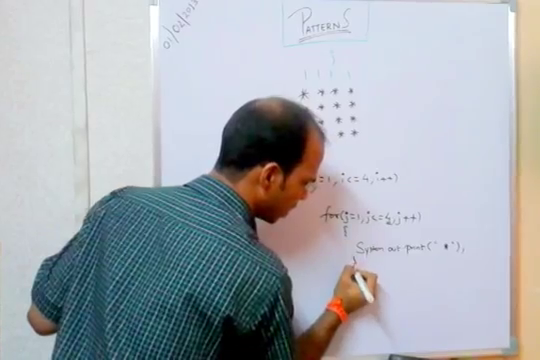 01/02/2013
PATTERNS
j
1 1 1 1
* * * *
* * *
* * *
* *
=1, i<=4, i++)
for(j=1, j<=4, j++)
{
System out print(" *");
}